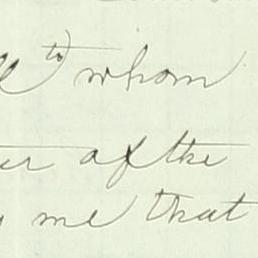 to whom
of the
me that